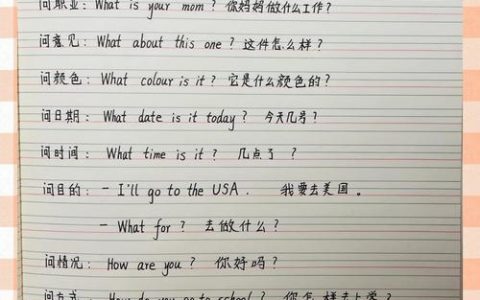 问职业：What is your mom？你妈妈做什么工作？
问意见：What about this one？这件怎么样？
问颜色：What colour is it？它是什么颜色的？
问日期：What date is it today？今天几号？
问时间：What time is it？几点了？
问目的：- I'll go to the USA. 我要去美国。
- What for？去做什么？
问情况：How are you？你好吗？
问方式：How do you go to school？你怎样去上学？